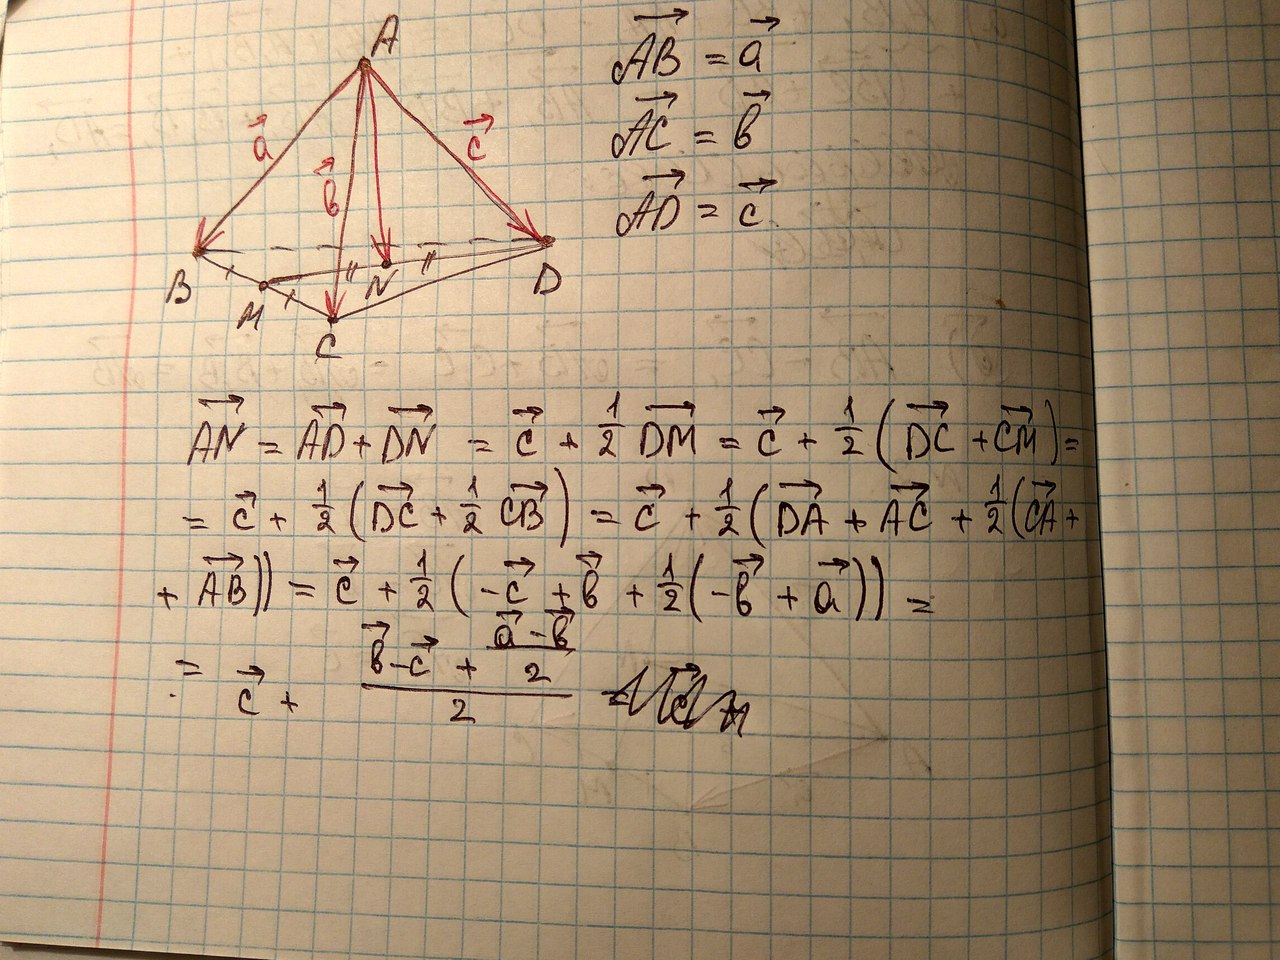 A
a⃗
b⃗
c⃗
B
M
C
N
D
A͞B⃗ = a⃗
A͞C⃗ = b⃗
A͞D⃗ = c⃗
A͞N⃗ = A͞D⃗ + D͞N⃗ = c⃗ + 1/2 D͞M⃗ = c⃗ + 1/2 (D͞C⃗ + C͞M⃗) =
= c⃗ + 1/2 (D͞C⃗ + 1/2 C͞B⃗) = c⃗ + 1/2 (D͞A⃗ + A͞C⃗ + 1/2 (C͞A⃗ +
+ A͞B⃗)) = c⃗ + 1/2 (-c⃗ + b⃗ + 1/2 (-b⃗ + a⃗)) =
= c⃗ + (b⃗ - c⃗ + (a⃗ - b⃗)/2)/2